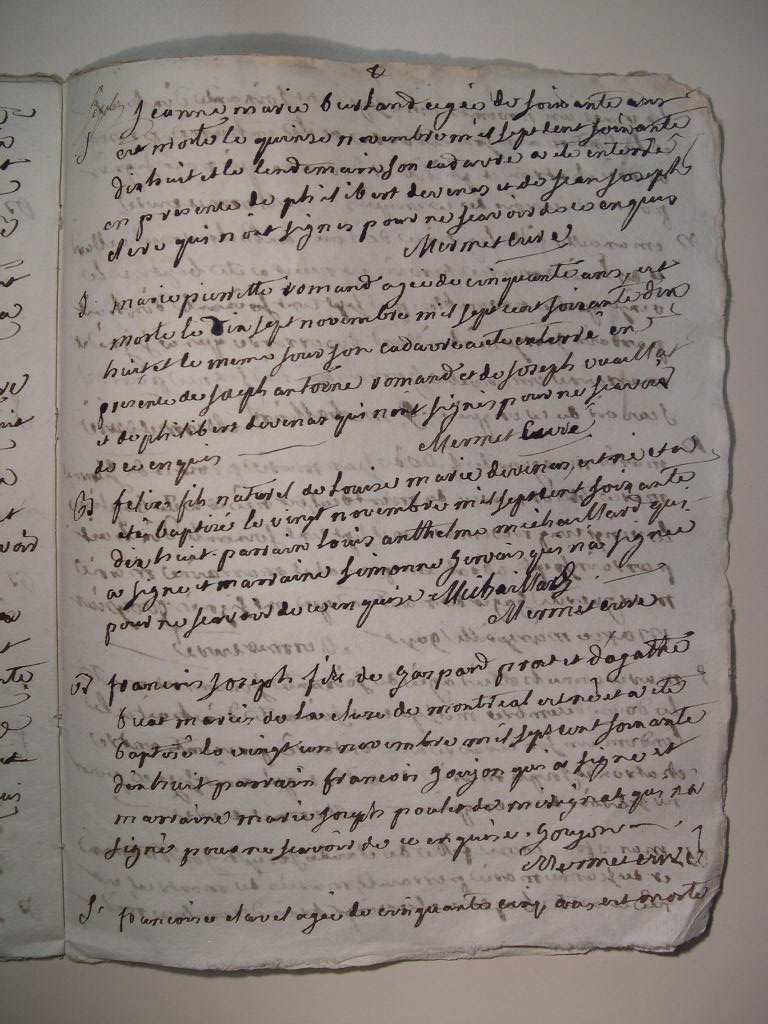 Jeanne marie burland agée de soixante ans
est morte le quinze novembre mil sept cent soixante
dix huit et le lendemain son cadavre a ete enterré
en presence de philibert devenas et de jean joseph
clere qui n'ont signés pour ne scavoir de ce enquis
Mermet curé
marie pierrette romand agée de cinquante ans, est
morte le dix sept novembre mil sept cent soixante dix
huit et le meme jour son cadavre a ete enterré en
presence de joseph antoine romand et de joseph vuaillat
et de philibert devenas qui n'ont signés pour ne scavoir
de ce enquis
Mermet Curé
felix fils naturel de louise marie devenas, est né et a
eté baptisé le vingt novembre mil sept cent soixante
dix huit. parrain louis anthelme michaillard qui
a signé et marraine simonne gervais qui n'a signée
pour ne scavoir de ce enquise. Michaillard
Mermet curé
francois joseph fils de gaspard prost et d'agathe
buat mariés de la cluse de montreal est né et a eté
baptisé le vingt un novembre mil sept cent soixante
dix huit parrain francois goujon qui a signé et
marraine marie joseph poulet de mérignat qui n'a
signé pour ne scavoir de ce enquise. goujon
Mermet curé
francoise clavel agée de cinquante cinq ans est morte